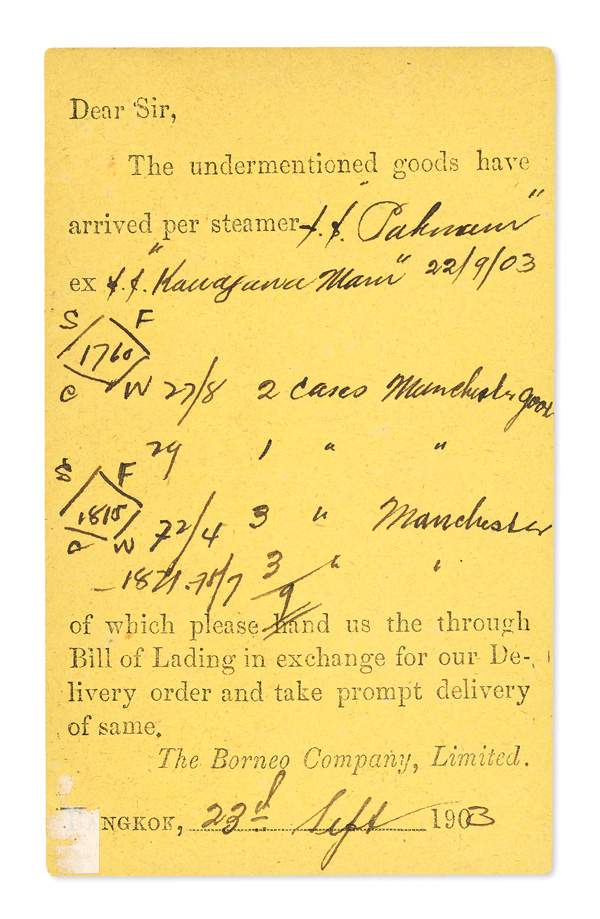 Dear Sir,
The undermentioned goods have
arrived per steamer s.s. "Paknam"
ex s.s. "Kanagawa Maru" 22/9/03
S F
1760
C W 27/8 2 cases Manchester goods
29 1 " "
S F
1815
C W 72/4 3 " Manchester
75/7 3 " "
9
of which please hand us the through
Bill of Lading in exchange for our De-
livery order and take prompt delivery
of same.
The Borneo Company, Limited.
BANGKOK, 23rd Sept 1903